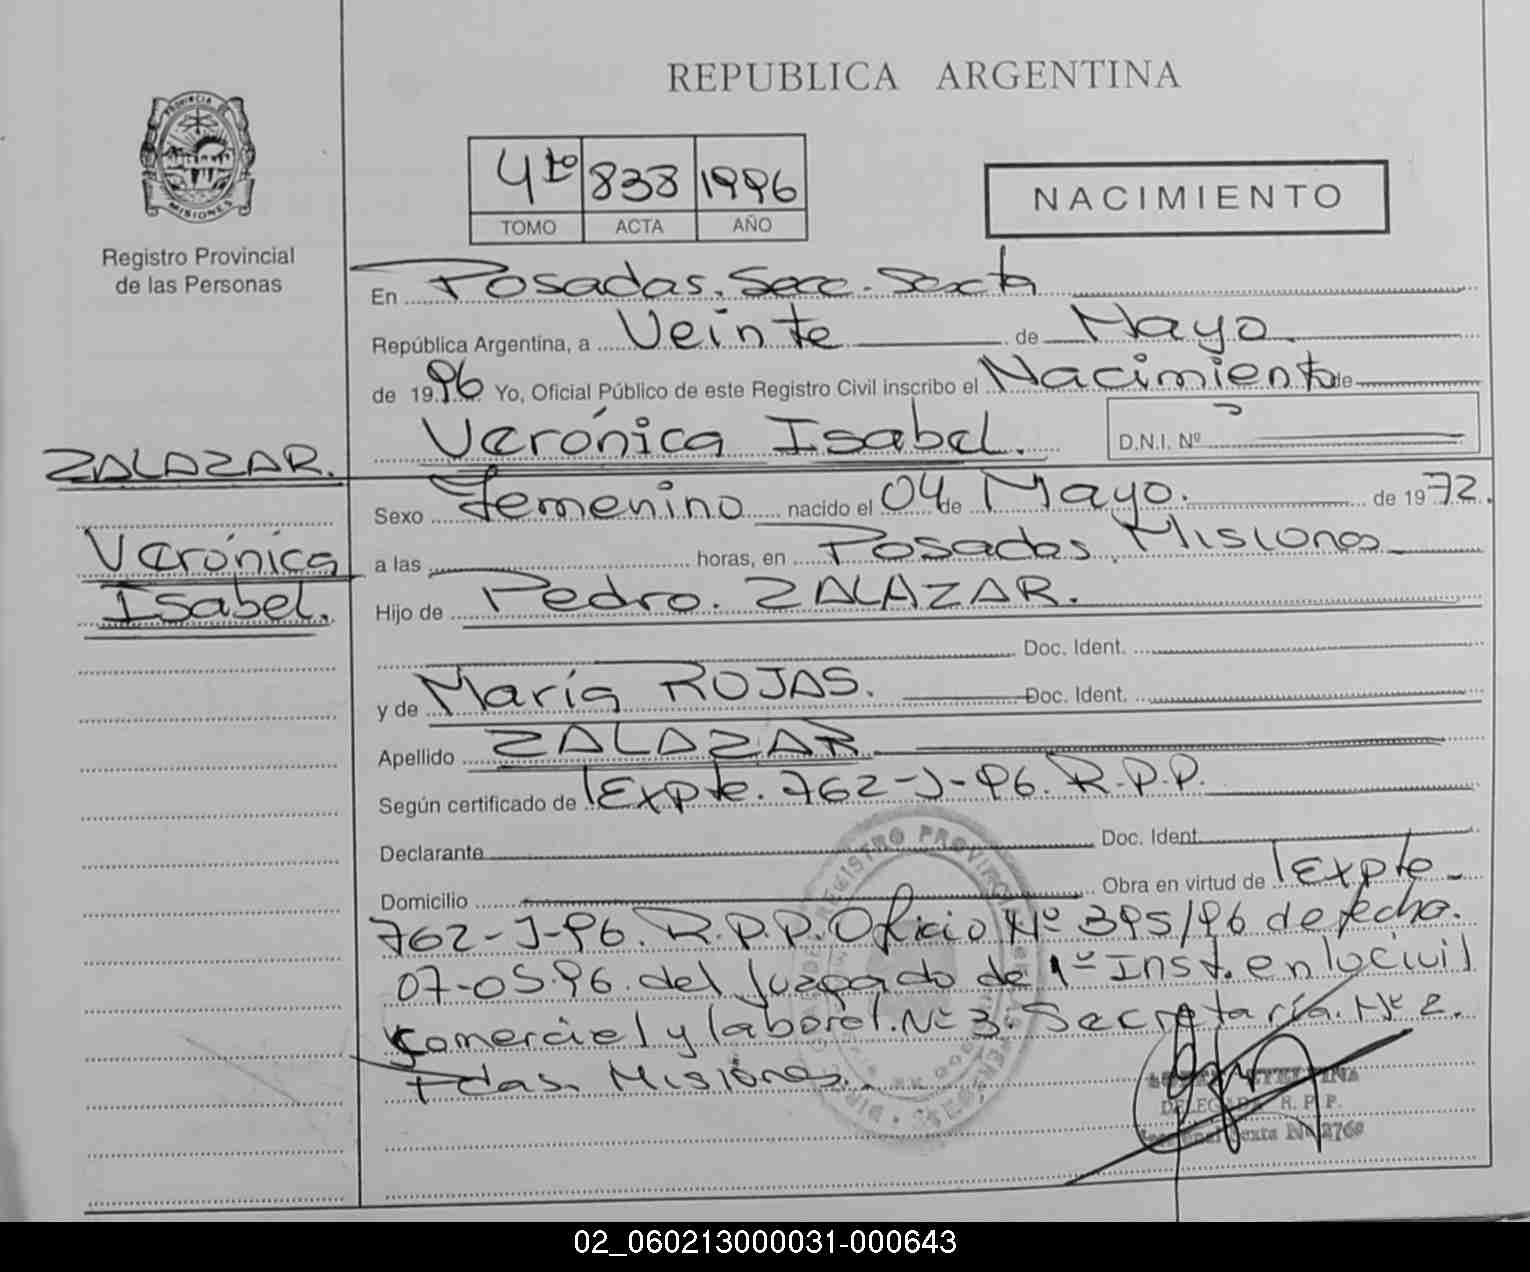 REPUBLICA ARGENTINA
PROVINCIA DE
MISIONES
Registro Provincial
de las Personas
4to 838 1996
TOMO ACTA AÑO
NACIMIENTO
En Posadas. Secc. Sexta
República Argentina, a Veinte de Mayo.
de 1996 Yo, Oficial Público de este Registro Civil inscribo el Nacimiento de
Verónica Isabel. D.N.I. Nº
ZALAZAR.
Verónica
Isabel.
Sexo Femenino nacido el 04 de Mayo. de 1972.
a las horas, en Posadas, Misiones
Hijo de Pedro. ZALAZAR.
Doc. Ident.
y de María ROJAS. Doc. Ident.
Apellido ZALAZAR
Según certificado de Expte. 762-J-96. R.P.P.
Declarante Doc. Ident.
Domicilio Obra en virtud de Expte
762-J-96. R.P.P. Oficio Nº 395/96 de fecha.
07-05-96. del Juzgado de 1º Inst. en lo Civil
Comercial y laboral. Nº 3. Secretaría. Nº 2.
Pdas. Misiones.
DELEGADA R. P. P.
Seccional Sexta Nº 2760
02_060213000031-000643